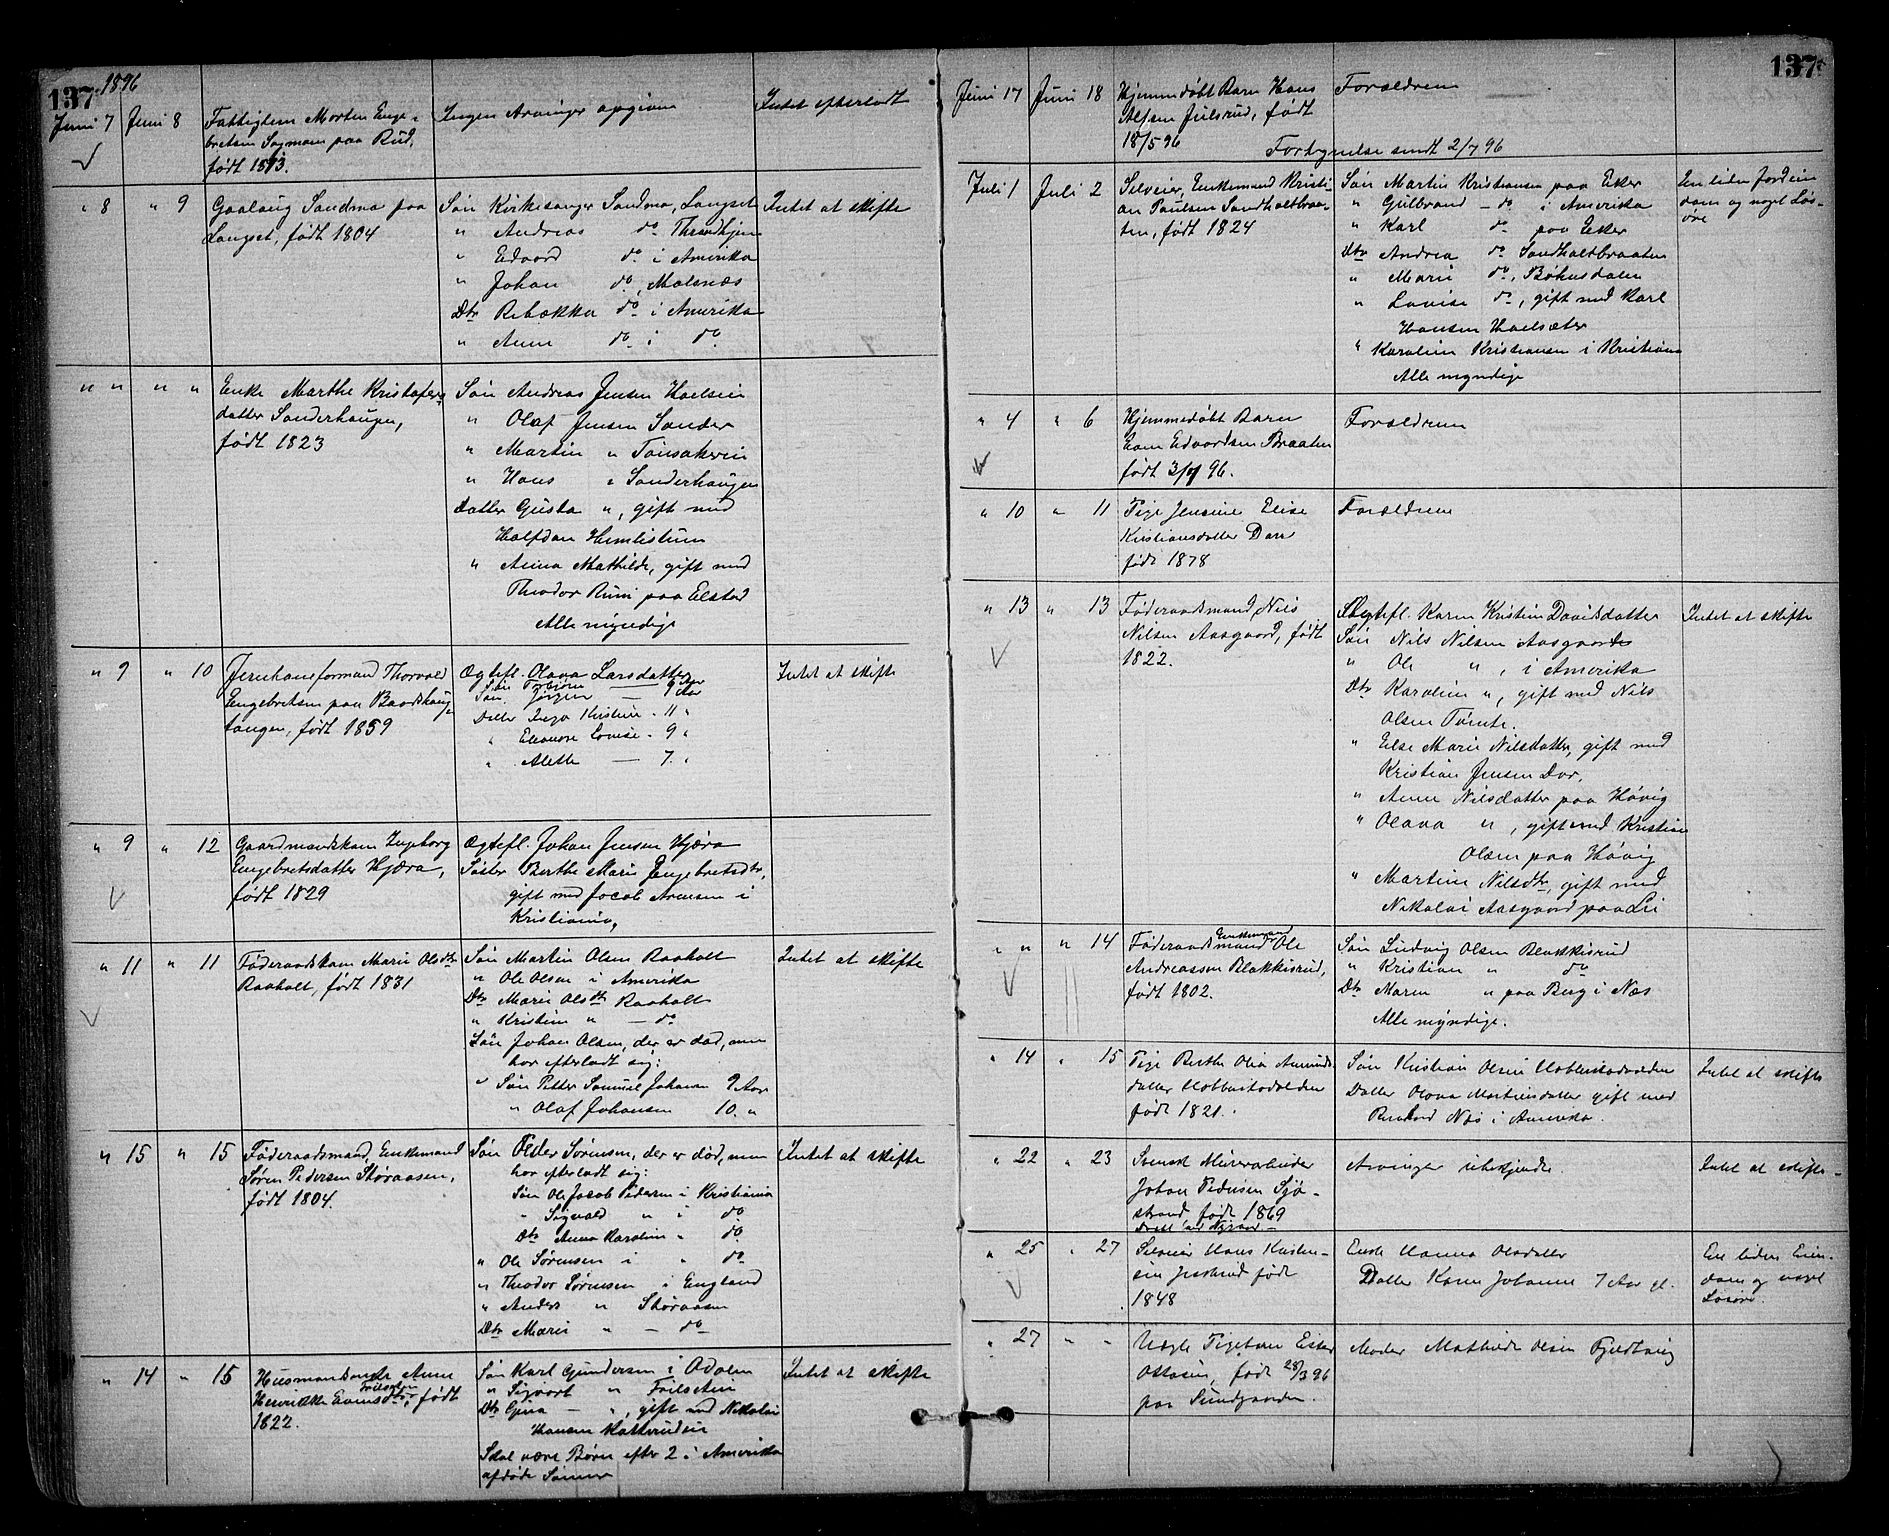 137
1896
Juni 7 Juni 8 Fattiglem Morten Enge- Ingen Arvinger opgivne Intet efterladt
bretsen Sagmoen paa Rud,
født 1813.
" 8 " 9 Gaalaug Sandmo paa Søn Kirkesanger Sandmo, Langset Intet at skifte
Langset, født 1804 " Andreas do Throndhjem
" Edvard do i Amerika
" Johan do, Malsnæs
Dtr Rebækka do i Amerika
" Anne do i do
" " " " Enke Marthe Kristofers- Søn Andreas Jensen Haelsin
datter Sanderhaugen, " Olaf Jensen Sander
født 1823 " Martin " Tønsakeren
" Hans " Sanderhaugen
Datter Gusta ", gift med
Halfdan Himlistuen
" Anna Mathilde, gift med
Theodor Runi paa Elstad
Alle myndige
" 9 " 10 Jernbaneformand Thorvald Ægtefl. Olava Larsdatter Intet at skifte
Engebretsen paa Baardshaug- Søn Torbjørn
tangen, født 1859 Søn Jørgen — 9 Aar
Datter Inga Kristine - 11 "
" Eleonore Lovise - 9 "
" Alette — 7 "
" 9 " 12 Gaardmandskone Ingeborg Ægtefl. Johan Jensen Hjæra
Engebretsdatter Hjæra, Søster Berthe Marie Engebretsdtr,
født 1829 gift med Jacob Arnesen i
Kristiania,
" 11 " 11 Føderaadskone Marie Olsdtr Søn Martin Olsen Raaholt Intet at skifte
Raaholt, født 1831 " Ole Olsen i Amerika
Dtr Marie Olsdtr Raaholt
" Kristine " — do
Søn Johan Olsen, der er død, men
har efterladt sig:
" Søn Petter Samuel Johansen 9 Aar
" Olaf Johansen 10 "
" 15 " 15 Føderaadsmand, Enkemand Søn Peder Sørensen, der er død, men Intet at skifte
Søren Pedersen Støraasen, har efterladt sig:
født 1804. Søn Ole Jacob Pedersen i Kristiania
" Sigvald " i do
Dtr Anna Karoline " do
" Ole Sørensen i " do
" Theodor Sørensen i England
" Anders " Støraasen
Dtr Marie " — do
" 14 " 15 Husmandsenke Anne Søn Karl Gundersen i Odalen Intet at skifte
Henrikke Evensdtr, født " Sigvart " Frilsetin
1822. Dtr Gina — ", gift med Nikolai
Hansen Katterudin
Skal være Børn efter 2 i Amerika
afdøde Sønner
137
Juni 17 Juni 18 Hjemmedøbt Barn Hans Forældrene
Alfsen Julsrud, født
18/5 96 Fortegnelse sendt 2/7 96
Juli 1 Juli 2 Selveier, Enkemand Kristi- Søn Martin Kristiansen paa Eker En liden Jordeien-
an Paulsen Sandholtbraa- " Gulbrand - do i Amerika dom og noget Løs-
ten, født 1824 " Karl do paa Eker øre
Dtr Andrea do Sandholtbraaten
" Marie do, Bøhnsdalen
" Lovise do, gift med Karl
Hansen Haelsæter
" Karoline Kristiansen i Kristiania
Alle myndige
" 4 " 6 Hjemmedøbt Barn Forældrene
Edvardsen Braaten
født 3/7 96.
" 10 " 11 Pige Jensine Elise Forældrene
Kristiansdatter Dorr
født 1878
" 13 " 13 Føderaadsmand Nils Ægtefl. Karen Kristine Davidsdatter Intet at skifte
Nilsen Aasgaard, født Søn Nils Nilsen Aasgaard
1822. " Ole ", i Amerika
Dtr Karoline ", gift med Nils
Olsen Tømte.
" Else Marie Nilsdatter, gift med
Kristian Jensen Dor,
" Anne Nilsdatter paa Høvig
" Olava ", gift med Kristian
Olsen paa Høvig
" Martine Nilsdtr, gift med
Nikolai Aasgaard paa Lii
" " " 14 Føderaadsmand Enkemand Ole Søn Ludvig Olsen Blakkisrud
Andreassen Blakkisrud, " Kristian " do
født 1802. Dtr Maren " paa Berg i Næs
Alle myndige.
" 14 " 15 Pige Berthe Olia Amunds- Søn Kristian Olsen Intet at skifte
datter Datter Olava Martinsdatter gift med
født 1821. Næs i Amerika.
" 22 " 23 Svensk Mineralarbeider Arvinger ubekjendte. Intet at skifte.
Johan Pedersen Sjø-
strand født 1869
" 25 " 27 Selveier Hans Kristen- Enke Hanna Olsdatter En liden Eien-
sen født Datter Karen Johanne 7 Aar gl. dom og noget
1848 Løsøre.
" 27 " " Uægte Pigebarn Ester Moder Mathilde Olsen Fjeldtvig
Ottosen, født 28/3 96
paa Sundgaarden.